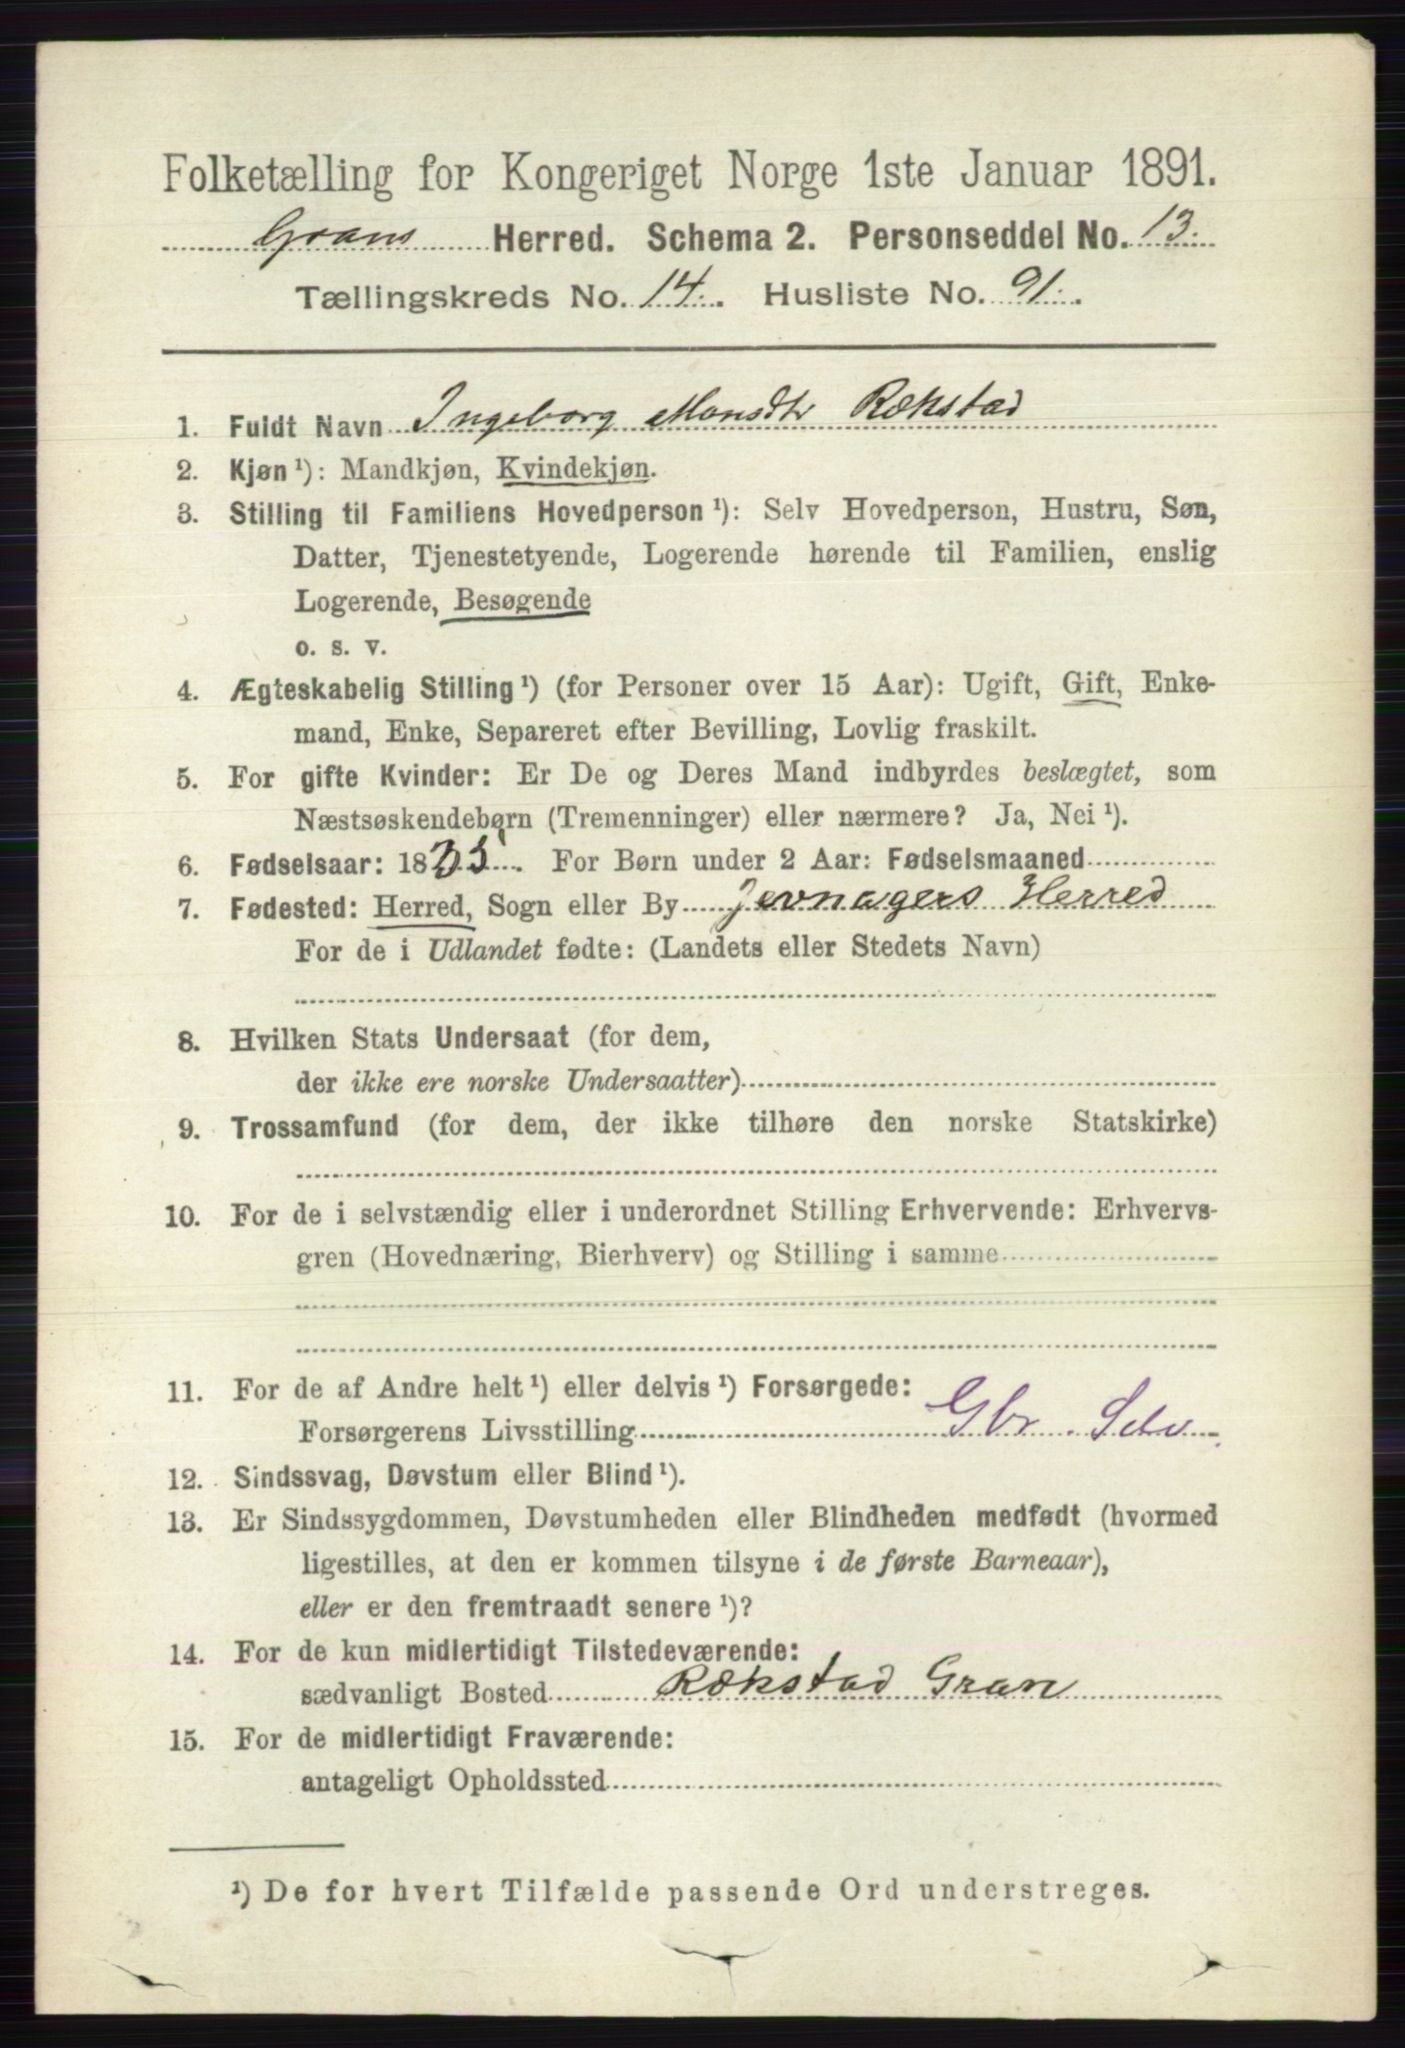 Folketælling for Kongeriget Norge 1ste Januar 1891.
Grans Herred. Schema 2. Personseddel No. 13.
Tællingskreds No. 14. Husliste No. 91.
1. Fuldt Navn Ingeborg Monsdtr Rækstad
2. Kjøn¹): Mandkjøn, Kvindekjøn.
3. Stilling til Familiens Hovedperson¹): Selv Hovedperson, Hustru, Søn,
Datter, Tjenestetyende, Logerende hørende til Familien, enslig
Logerende, Besøgende
o. s. v.
4. Ægteskabelig Stilling¹) (for Personer over 15 Aar): Ugift, Gift, Enke-
mand, Enke, Separeret efter Bevilling, Lovlig fraskilt.
5. For gifte Kvinder: Er De og Deres Mand indbyrdes beslægtet, som
Næstsøskendebørn (Tremenninger) eller nærmere? Ja, Nei¹).
6. Fødselsaar: 1835. For Børn under 2 Aar: Fødselsmaaned
7. Fødested: Herred, Sogn eller By Jevnagers Herred
For de i Udlandet fødte: (Landets eller Stedets Navn)
8. Hvilken Stats Undersaat (for dem,
der ikke ere norske Undersaatter)
9. Trossamfund (for dem, der ikke tilhøre den norske Statskirke)
10. For de i selvstændig eller i underordnet Stilling Erhvervende: Erhvervs-
gren (Hovednæring, Bierhverv) og Stilling i samme
11. For de af Andre helt¹) eller delvis¹) Forsørgede:
Forsørgerens Livsstilling Gbr. Selv
12. Sindssvag, Døvstum eller Blind¹).
13. Er Sindssygdommen, Døvstumheden eller Blindheden medfødt (hvormed
ligestilles, at den er kommen tilsyne i de første Barneaar),
eller er den fremtraadt senere¹)?
14. For de kun midlertidigt Tilstedeværende:
sædvanligt Bosted Rækstad Gran
15. For de midlertidigt Fraværende:
antageligt Opholdssted
¹) De for hvert Tilfælde passende Ord understreges.